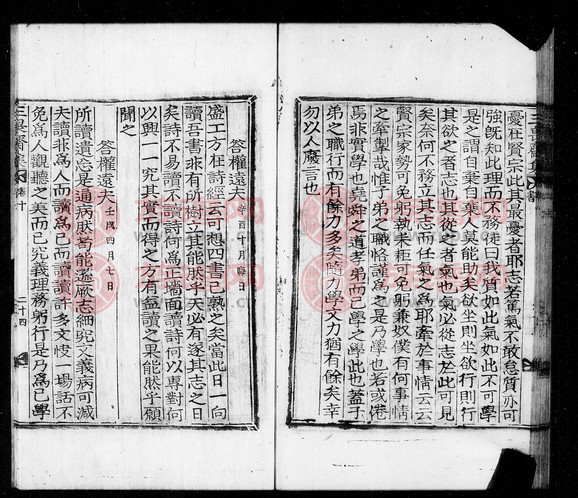 憂在賢宗此其最憂者耶志若篤氣不敢怠質亦可
強旣知此理而不務徒曰我質如此氣如此不可學
是之謂自暴自棄人莫能助矣欲坐則坐欲行則行
其欲之者志也其從之者氣也氣必從志於此可見
矣奈何不務立其志而任氣之爲耶牽於事情云云
賢宗家勢可免躬執耒秬可免躬兼奴僕有何事情
之牽掣哉惟子弟之職恪謹爲之是乃學也若或倦
焉非實學也堯舜之道孝弟而已學之學此也蓋子
弟之職行而有餘力多矣隨力學文力猶有餘矣幸
勿以人廢言也
答權遠夫 辛酉十月晦日
盛工方在詩經云可想四書已熟之矣當此日一向
讀吾書非有所樹立其能然乎天必有遂其志之日
矣詩不易讀不讀詩何爲正墻面讀詩何以專對何
以興一一究其實而得之方有益讀之果能然乎願
聞之
答權遠夫 壬戌四月七日
所讀遺忘是通病然苟能遜厥志細究文義病可減
夫讀非爲人而讀爲己而讀讀許多文恔一場話不
免爲人觀聽之美而已究義理務躬行是乃爲己學
卷十
二十四